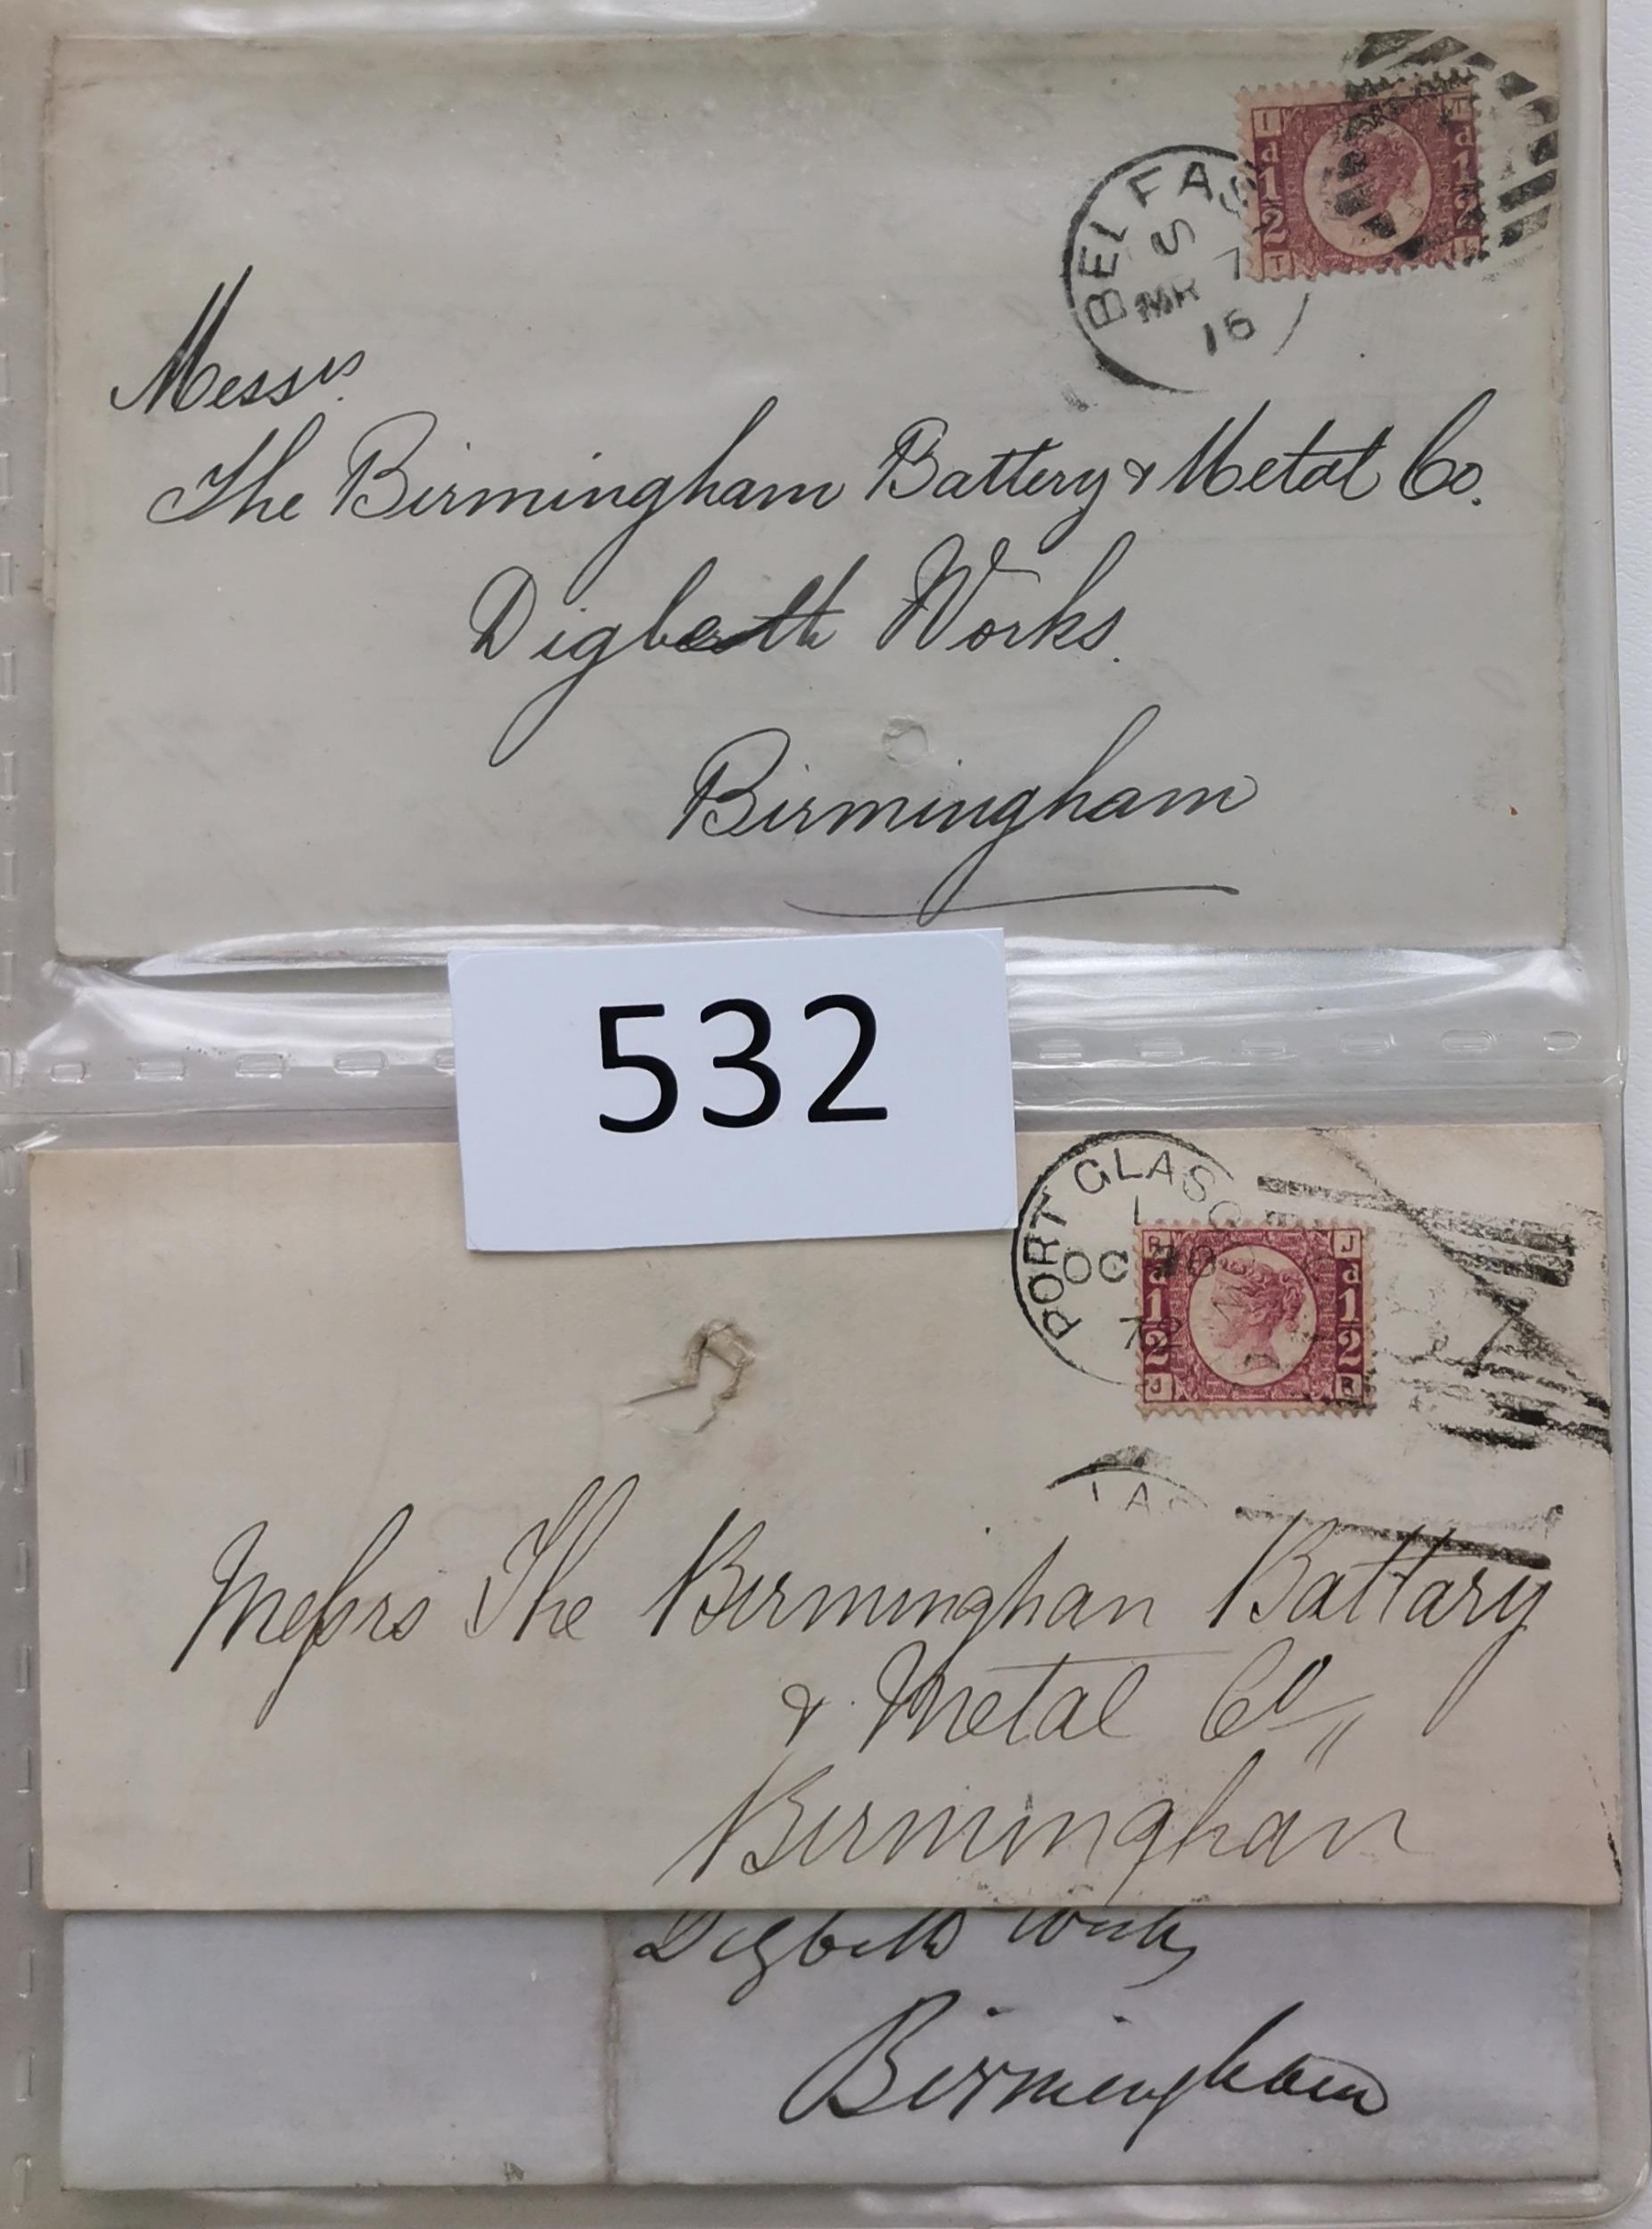 BELFAS
S
MR 7
16
I T
d d
1 1
2 2
T I
Messrs.
The Birmingham Battery & Metal Co.
Digbeth Works.
Birmingham
532
PORT GLASGO
1
OC
72
R J
d d
1 1
2 2
J R
LAS
Messrs The Birminghan Battary
& Metal Co
Birminghan
Digbeth Works
Birmingham